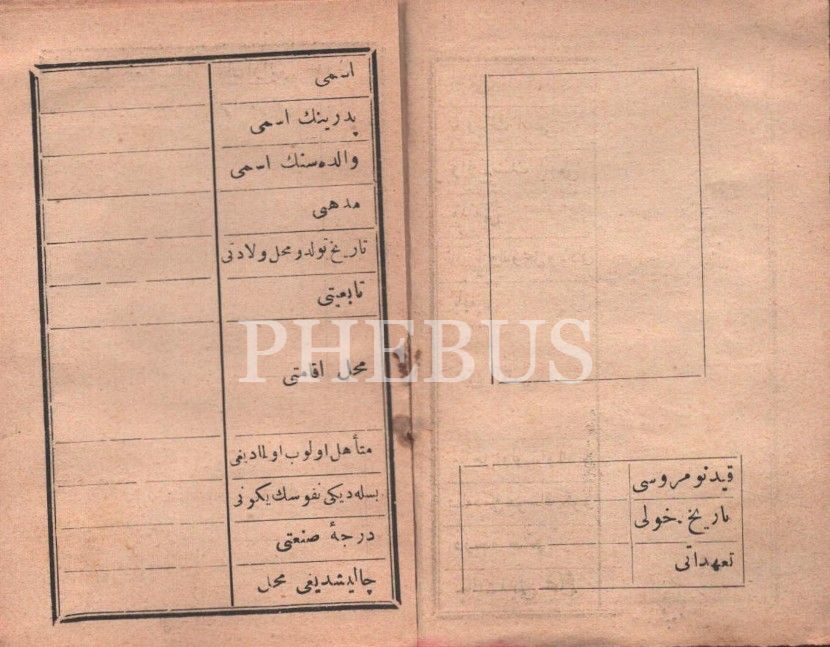 قید نومروسی
تاریخ دخولی
تعهداتی
اسمی
پدرینك اسمی
والده‌سنك اسمی
مذهبی
تاریخ تولد و محل ولادتی
تابعیتی
محل اقامتی
متأهل اولوب اولمادیغی
بسله‌دیكی نفوسك یكونی
درجهٔ صنعتی
چالیشدیغی محل
PHEBUS